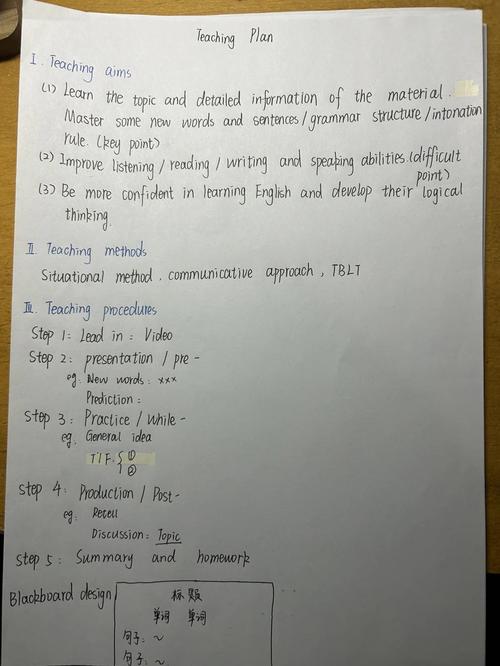 Teaching Plan
I. Teaching aims
(1) Learn the topic and detailed information of the material.
Master some new words and sentences/grammar structure/intonation
rule. (key point)
(2) Improve listening/reading/writing and speaking abilities.(difficult
point)
(3) Be more confident in learning English and develop their logical
thinking.
II. Teaching methods
Situational method. communicative approach, TBLT
III. Teaching procedures
Step 1: Lead in: Video
Step 2: presentation / pre-
eg: New words: xxx
Prediction:
Step 3: Practice / While-
eg. General idea
T/F. { ①
②
Step 4: Production / Post-
eg: Retell
Discussion: Topic
Step 5: Summary and homework
Blackboard design
标题
单词 单词
句子: ~
句子: ~